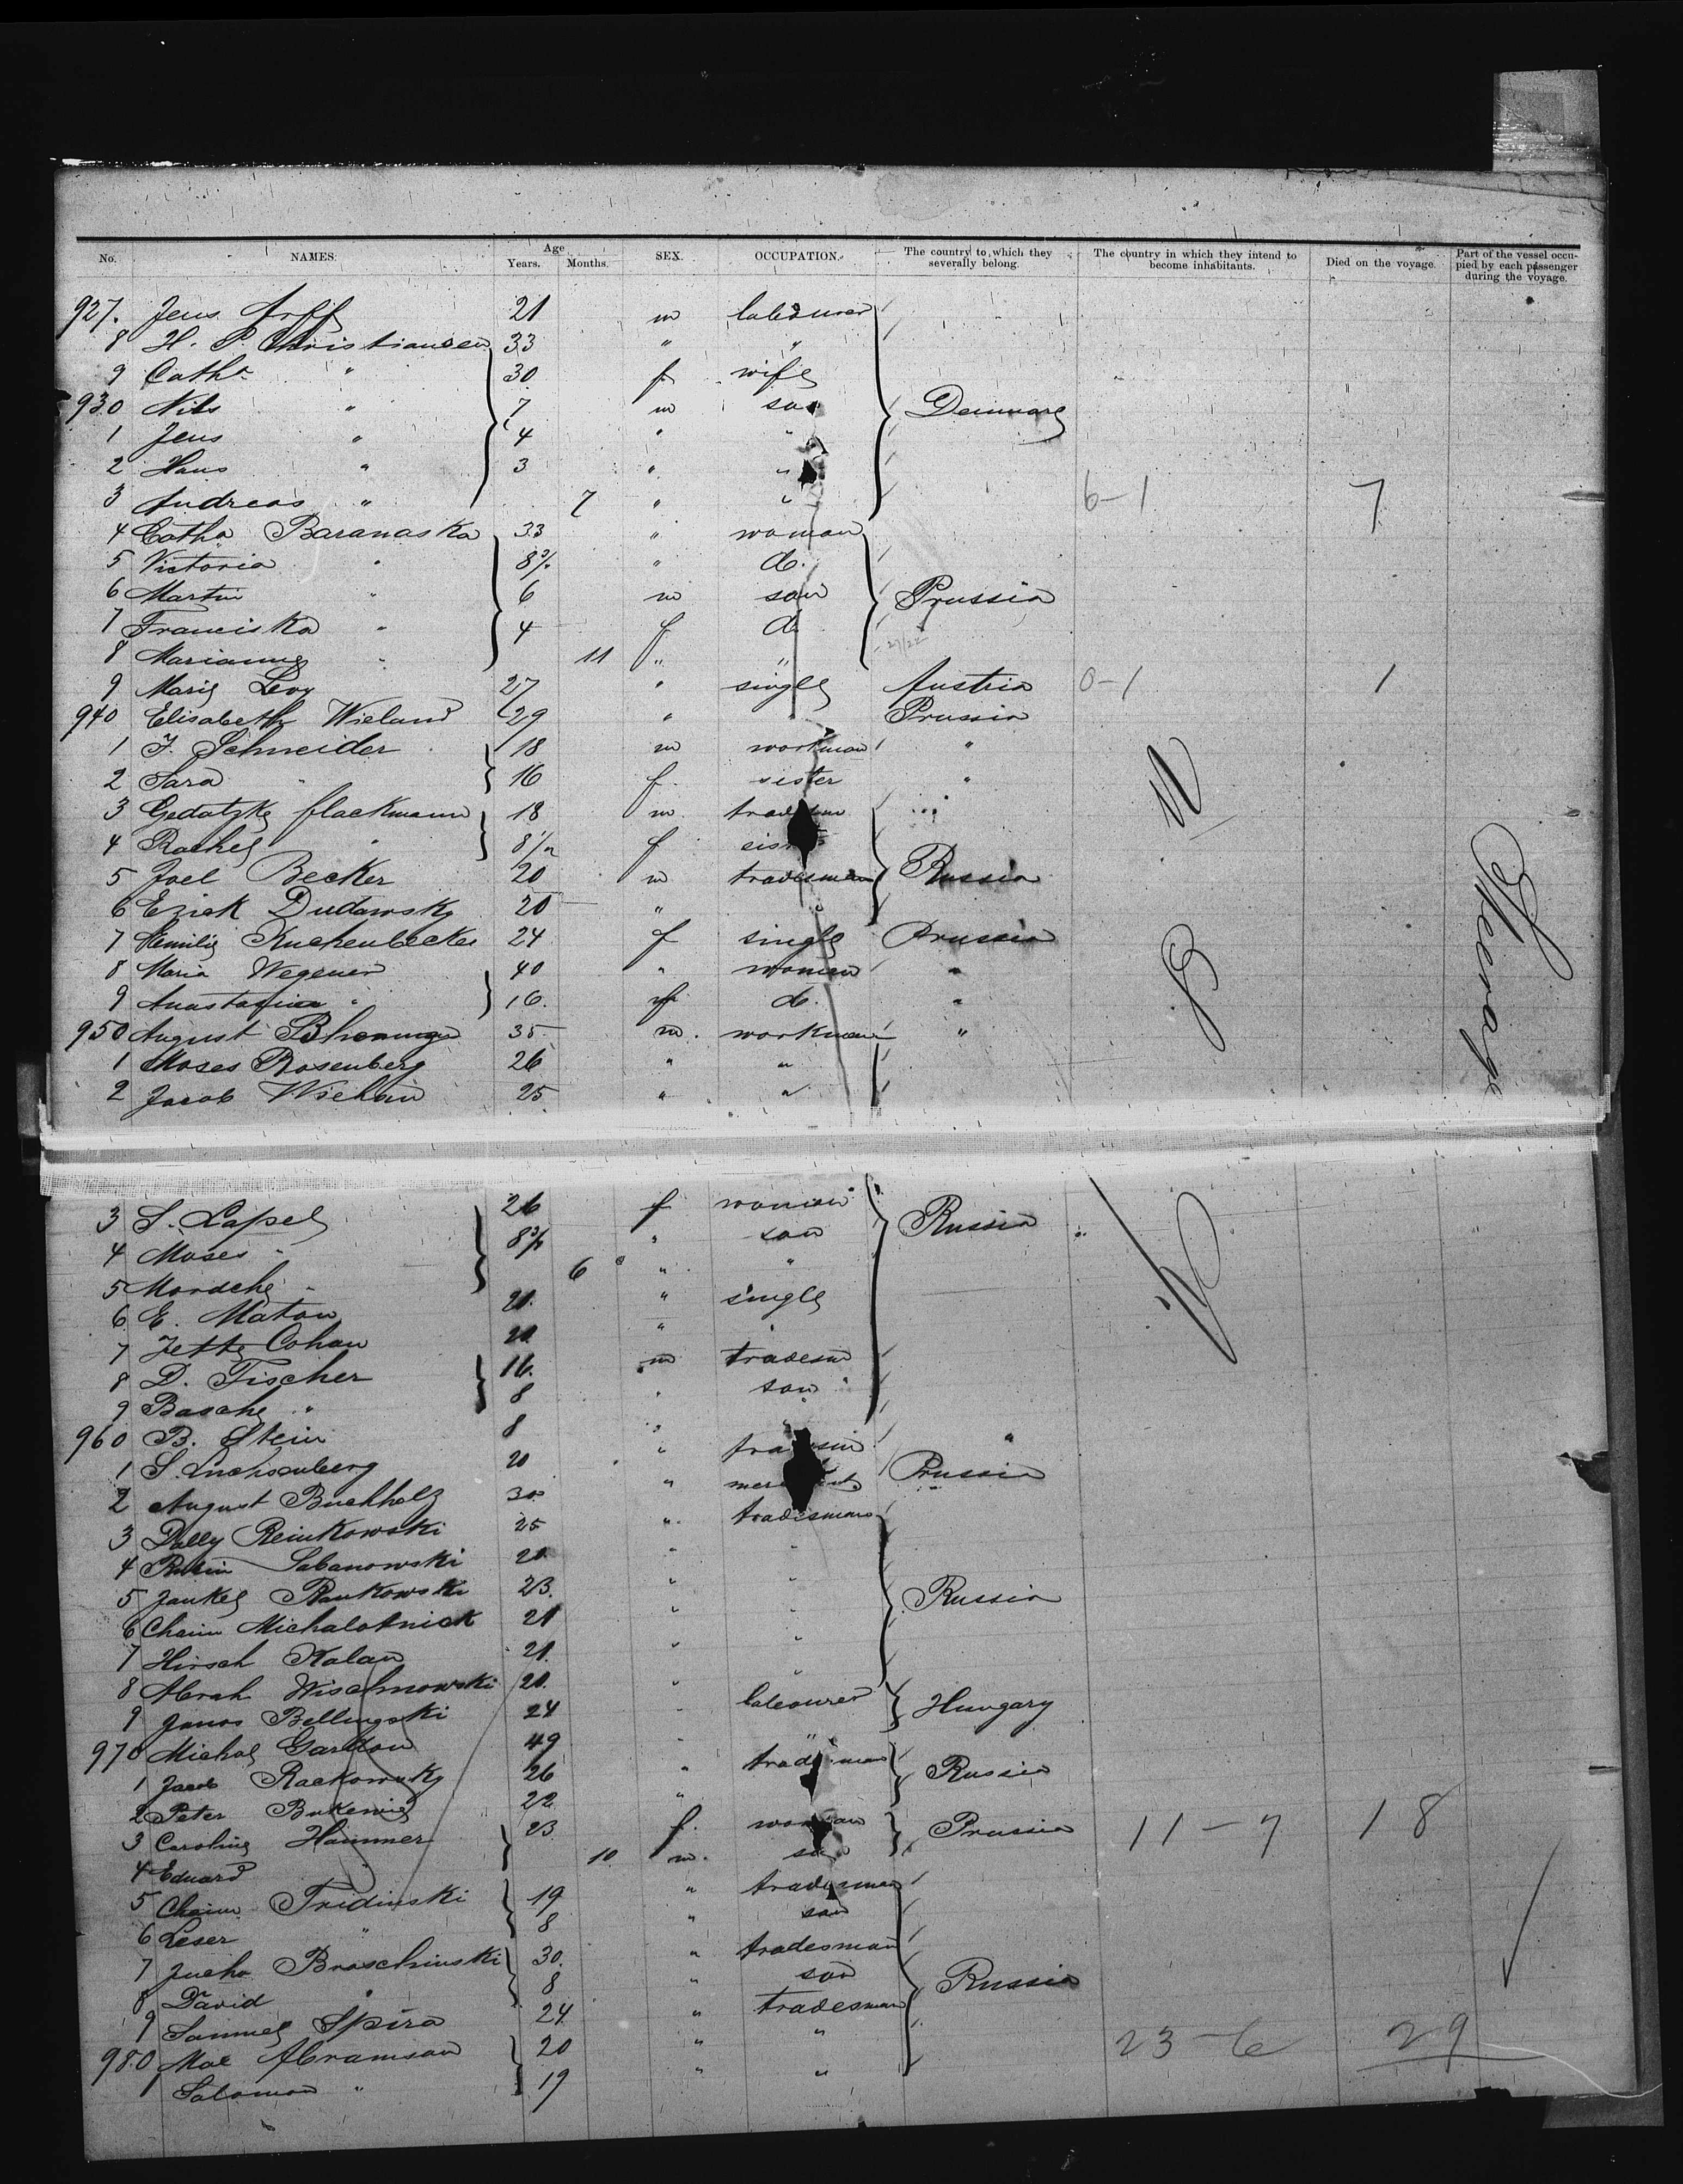 No. NAMES. Age Years. Months. SEX. OCCUPATION. The country to which they severally belong. The country in which they intend to become inhabitants. Died on the voyage. Part of the vessel occupied by each passenger during the voyage.
927. Jens 21 m labourer
8 H. P. Christiansen 33 " "
9 Catha " 30 f wife
930 Nils " 7 m son Denmark
1 Jens " 4 " "
2 Hans " 3 " "
3 Andreas " 7 " " 6-1 7
4 Catha Baranaska 33 " woman
5 Victoria " 8 " d.
6 Martin " 6 m son Prussia
7 Franciska " 4 f d.
8 Marianne " 11 " "
9 Marie Levy 27 " single Austria 0-1 1
940 Elisabeth Wieland 29 " " Prussia
1 F. Schneider 18 m workman "
2 Sara " 16 f sister "
3 Gedatzke flackmann 18 m
4 Rachel " 8 f
5 Joel Becker 20 m tradesman Russia
6 Dudawsky 20 " "
7 Emilie Kuchenbecker 24 f single Prussia
8 Maria Wegener 40 " woman "
9 " 16. f d. "
950 August 35 m. workman "
1 Moses Rosenberg 26 " "
2 Jacob 25 " "
Steerage
3 S. Lapel 26 f woman Russia
4 Moses " 8 " son
5 Mordche " 6 " "
6 E. Maton 21. " single
7 Jette Cohan 21 " "
8 D. Fischer 16. m tradesm
9 Basche " 8 " son
960 B. Stein 8 " "
1 S. 20 "
2 August Buchholz 30 " Prussia
3 Reinkowski 25 " tradesman
4 Sabanowski 21 " "
5 Jankel Rankowski 23. " " Russia
6 Chaim Michalotnick 21 " "
7 Hirsch Kalan 21. " "
8 Abrah Wischnowski 21. " "
9 Janos Bellingski 24 " labourer Hungary
970 Michal 49 " "
1 Jacob Rackowsky 26 " tradesman Russia
2 Peter 22 " "
3 Caroline Hammer 23 f. woman Prussia 11-7 18
4 Eduard 10 m.
5 Chaim Fridinski 19 " tradesman
6 Leser " 8 " son
7 Broschinski 30. " tradesman
8 David " 8 " son Russia
9 Samuel Spira 24 " tradesman
980 Abramson 20 " " 23-6 29
1 Salomon " 19 " "